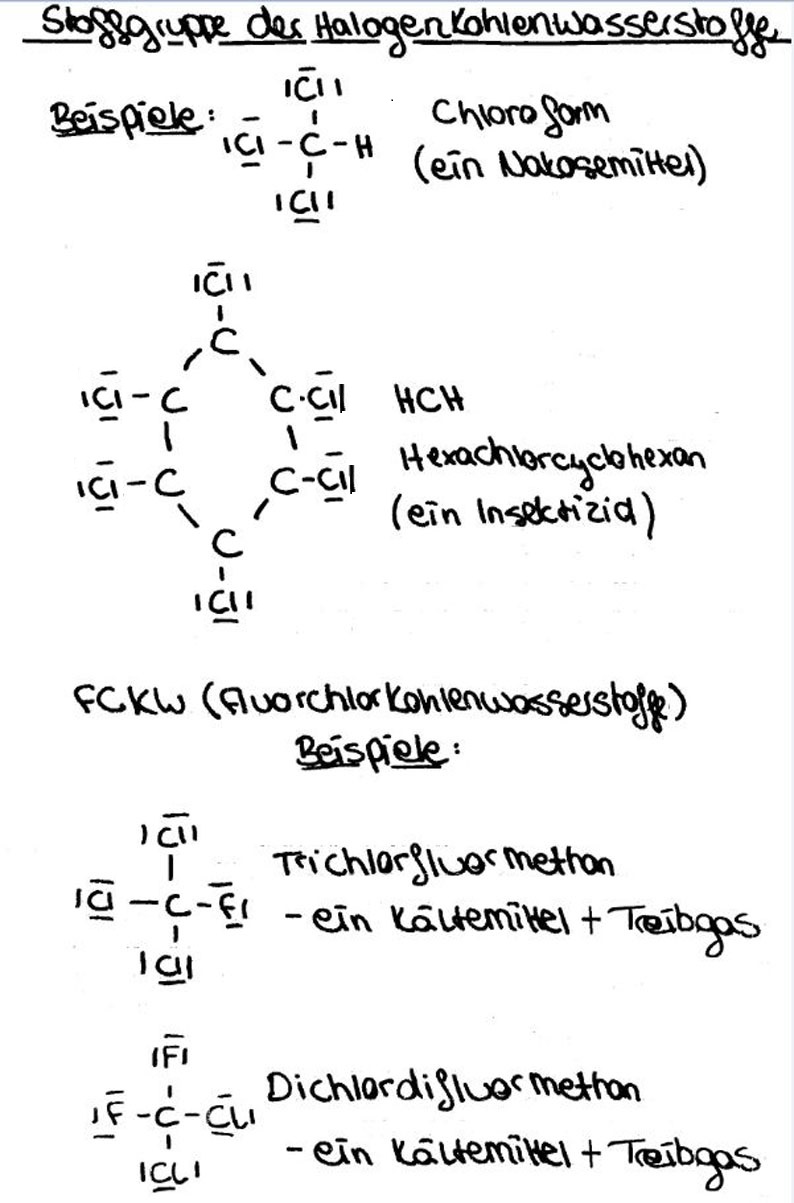 Stoffgruppe der Halogenkohlenwasserstoffe
Beispiele:
|Cl|
|Cl - C - H
|Cl|
Chloroform
(ein Nakosemittel)
|Cl|
C
|Cl - C
C · Cl|
HCH
|Cl - C
C - Cl|
Hexachlorcyclohexan
(ein Insektizid)
C
|Cl|
FCKW (Fluorchlorkohlenwasserstoffe)
Beispiele:
|Cl|
|Cl — C - F|
|Cl|
Trichlorfluormethan
- ein Kältemittel + Treibgas
|F|
|F - C - Cl|
|Cl|
Dichlordifluormethan
- ein Kältemittel + Treibgas